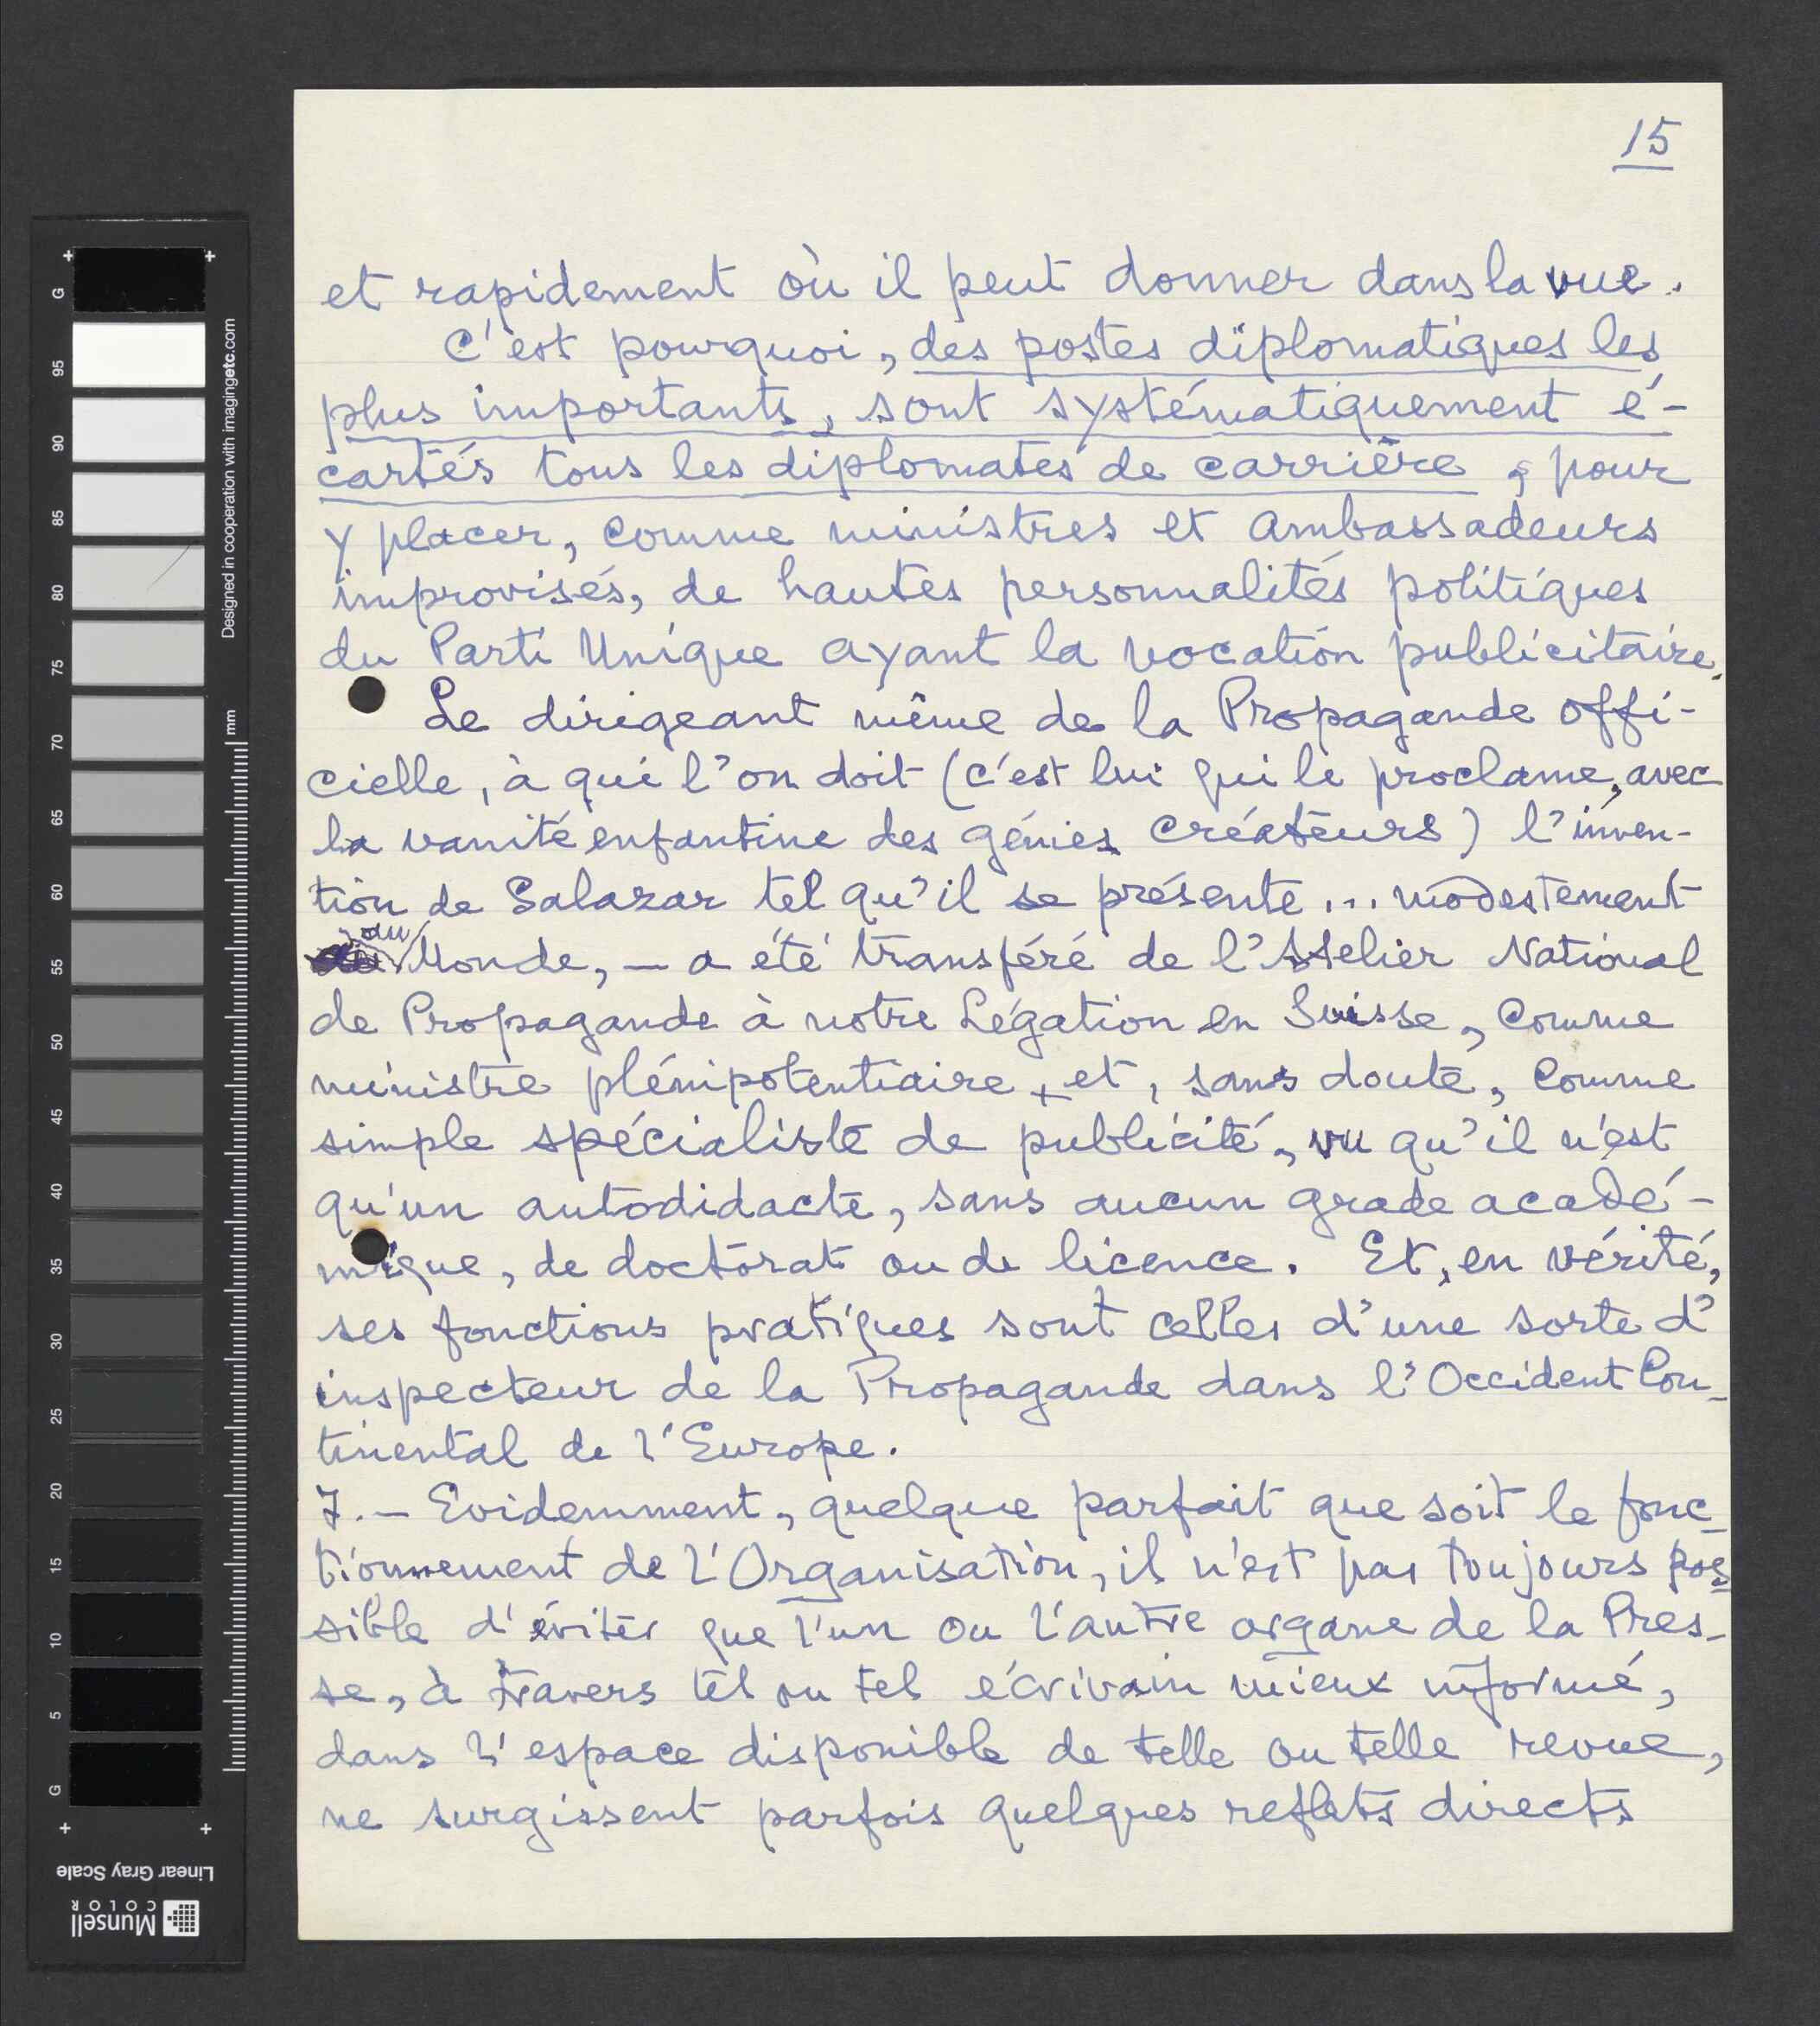 15
et rapidement où il peut donner dans la vue.
C'est pourquoi, des postes diplomatiques les
plus importants, sont systématiquement é-
cartés tous les diplomates de carrière, pour
y placer, comme ministres et ambassadeurs
improvisés, de hautes personnalités politiques
du Parti Unique ayant la vocation publicitaire.
Le dirigeant même de la Propagande offi-
cielle, à qui l'on doit (c'est lui qui le proclame, avec
la vanité enfantine des génies créateurs) l'inven-
tion de Salazar tel qu'il se présente... modestement
au Monde, — a été transféré de l'Atelier National
de Propagande à notre Légation en Suisse, comme
ministre plénipotentiaire, et, sans doute, comme
simple spécialiste de publicité, vu qu'il n'est
qu'un autodidacte, sans aucun grade acadé-
mique, de doctorat ou de licence. Et, en vérité,
ses fonctions pratiques sont celles d'une sorte d'
inspecteur de la Propagande dans l'Occident Con-
tinental de l'Europe.
7.— Evidemment, quelque parfait que soit le fonc-
tionnement de l'Organisation, il n'est pas toujours pos-
sible d'éviter que l'un ou l'autre organe de la Pres-
se, à travers tel ou tel écrivain mieux informé,
dans l'espace disponible de telle ou telle revue,
ne surgissent parfois quelques reflets directs
G
95
90
85
80
75
70
65
60
55
50
45
40
35
30
25
20
15
10
5
G
Designed in cooperation with imagingetc.com
mm
Linear Gray Scale
Munsell
COLOR